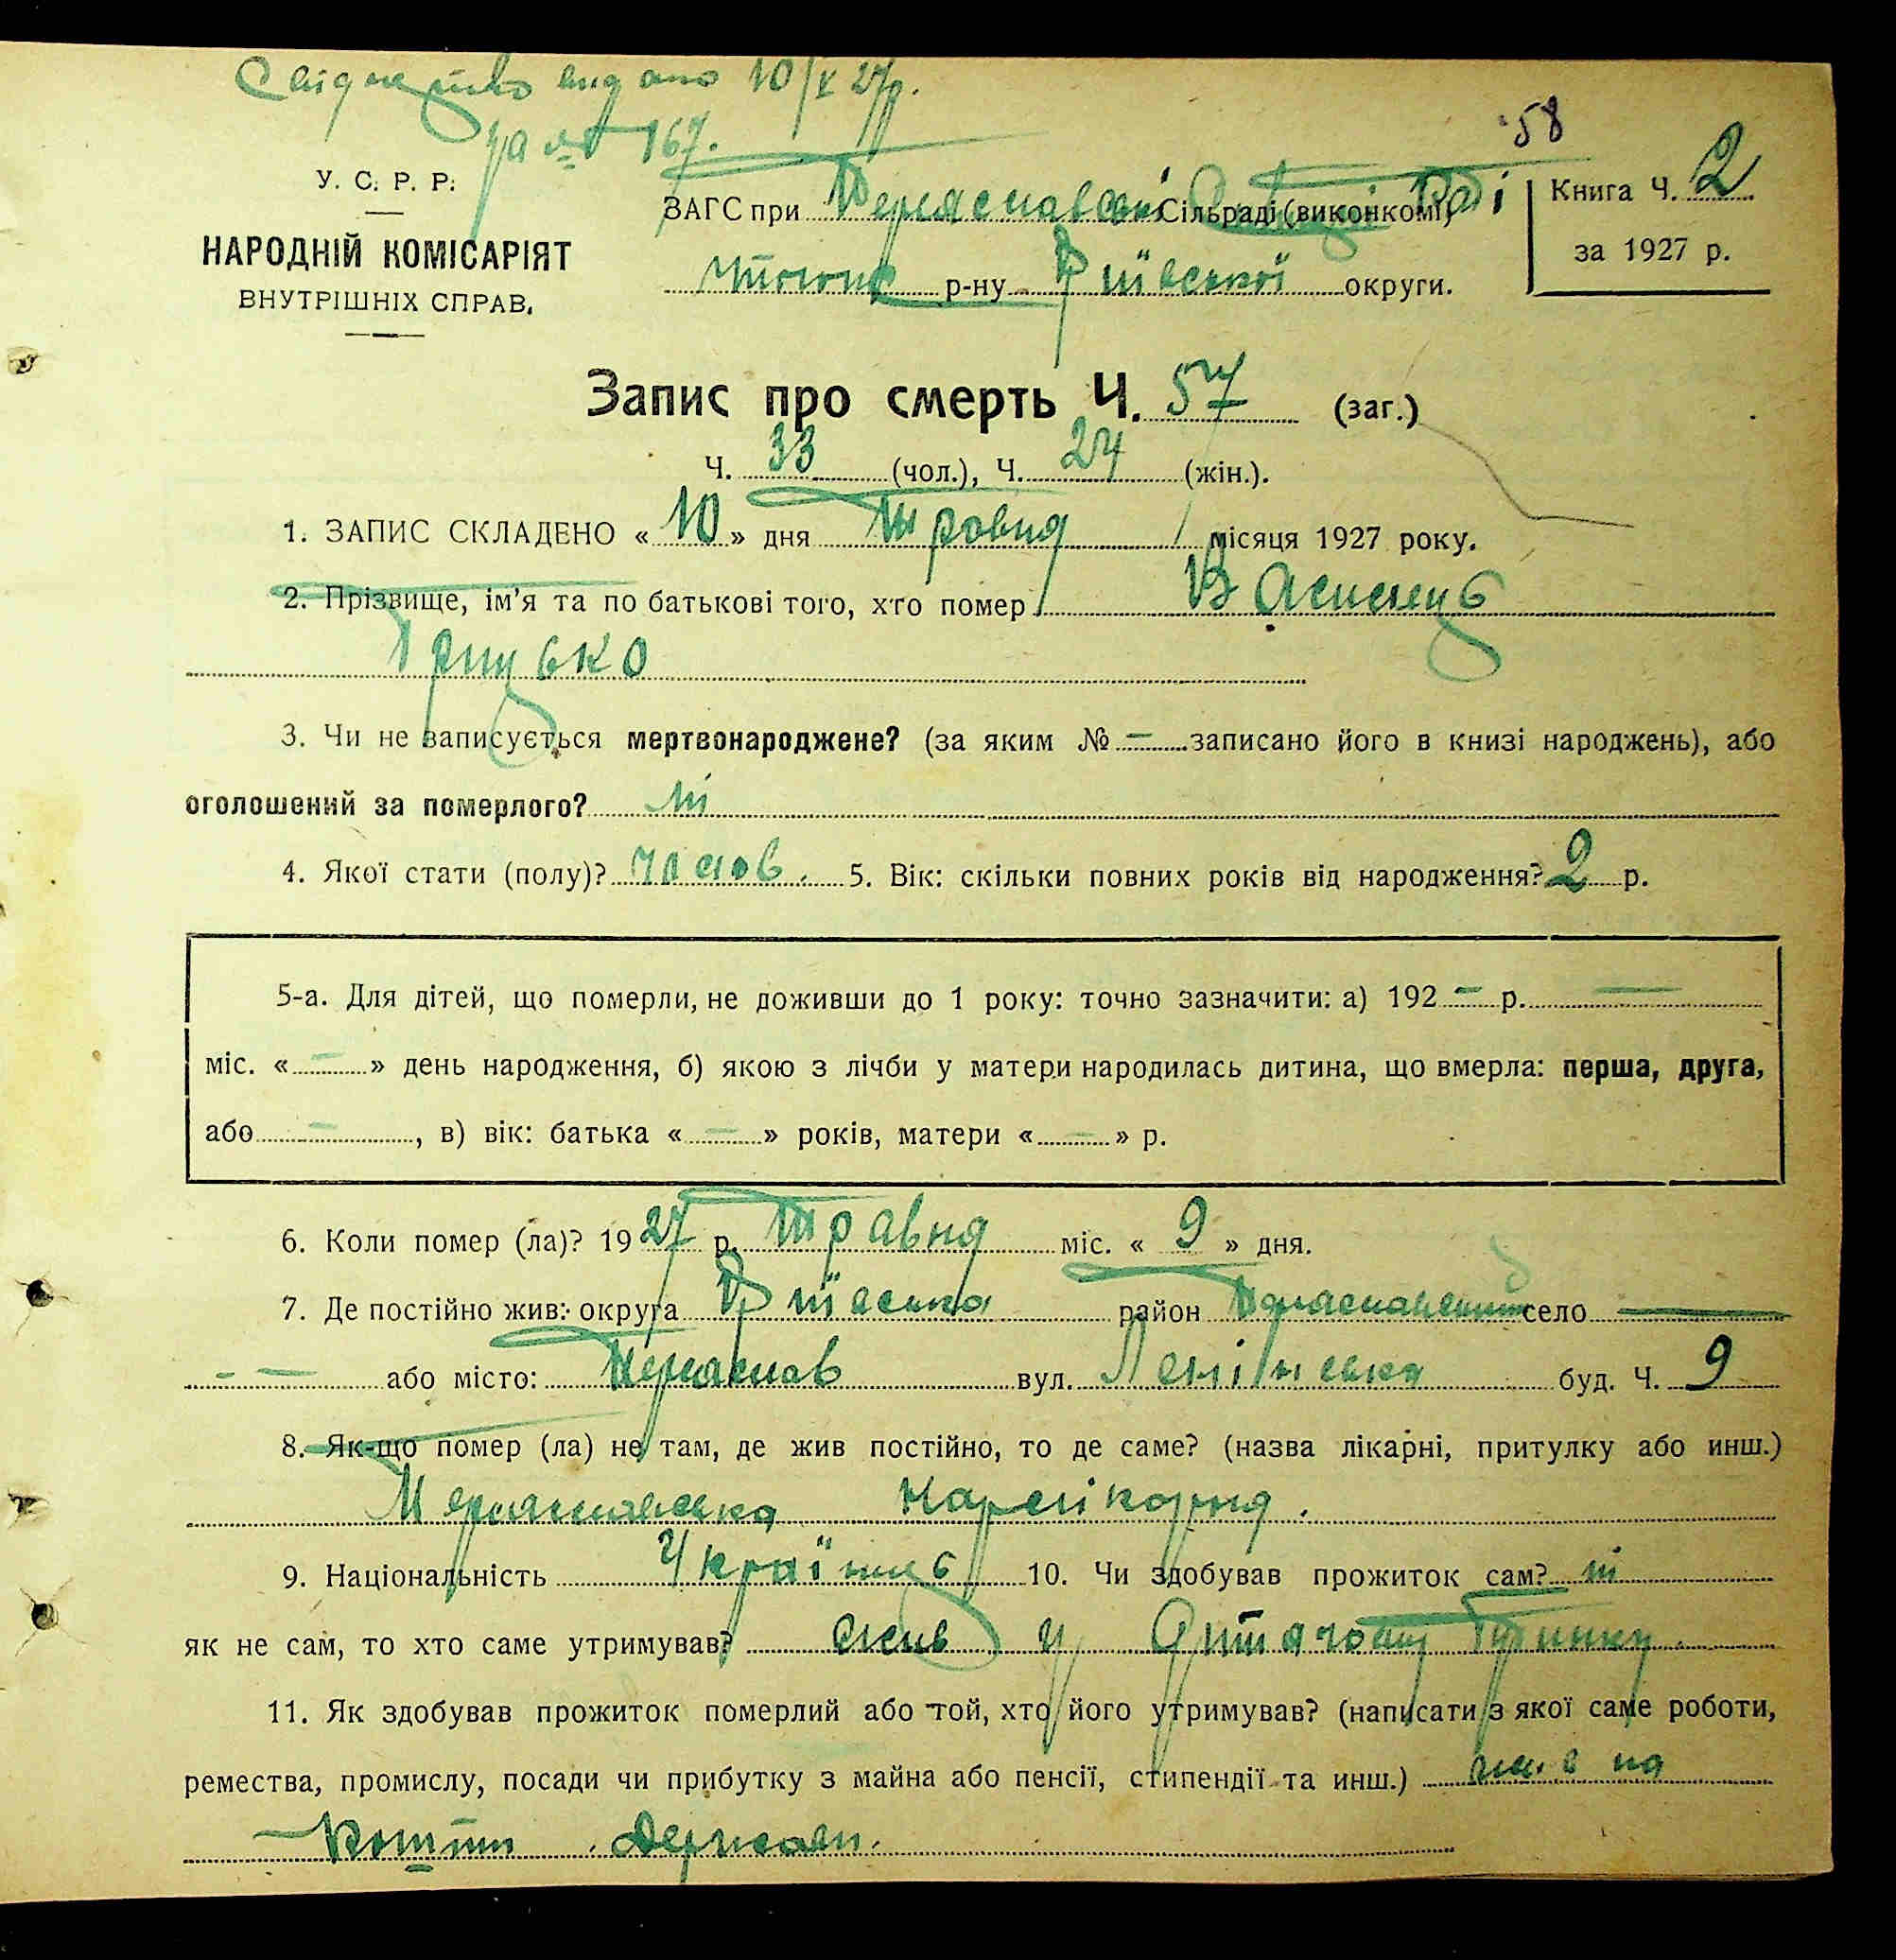 Свідоцтво видано 10/V 27р.
за № 167.
58
У. С. Р. Р.
НАРОДНІЙ КОМІСАРІЯТ
ВНУТРІШНІХ СПРАВ.
ЗАГС при Переяславській Сільраді (виконкомі) Раді
р-ну Київської округи.
Книга Ч. 2
за 1927 р.
Запис про смерть Ч. 57 (заг.)
Ч. 33 (чол.), Ч. 24 (жін.).
1. ЗАПИС СКЛАДЕНО « 10 » дня травня місяця 1927 року.
2. Прізвище, ім'я та по батькові того, хто помер Василець
Грицько
3. Чи не записується мертвонароджене? (за яким № — записано його в книзі народжень), або
оголошений за померлого? ні
4. Якої стати (полу)? чолов. 5. Вік: скільки повних років від народження? 2 р.
5-а. Для дітей, що померли, не доживши до 1 року: точно зазначити: а) 192 — р. —
міс. « — » день народження, б) якою з лічби у матери народилась дитина, що вмерла: перша, друга,
або — , в) вік: батька « — » років, матери « — » р.
6. Коли помер (ла)? 1927 р. Травня міс. « 9 » дня.
7. Де постійно жив: округа Київська район Переяславський село —
— — або місто: Переяслав вул. Ленінська буд. Ч. 9
8. Як-що помер (ла) не там, де жив постійно, то де саме? (назва лікарні, притулку або инш.)
Переяславська Нарлікарня.
9. Національність Українець 10. Чи здобував прожиток сам? ні
як не сам, то хто саме утримував? жив у Дитячому Будинку.
11. Як здобував прожиток померлий або той, хто його утримував? (написати з якої саме роботи,
ремества, промислу, посади чи прибутку з майна або пенсії, стипендії та инш.) жив на
кошти Держави.